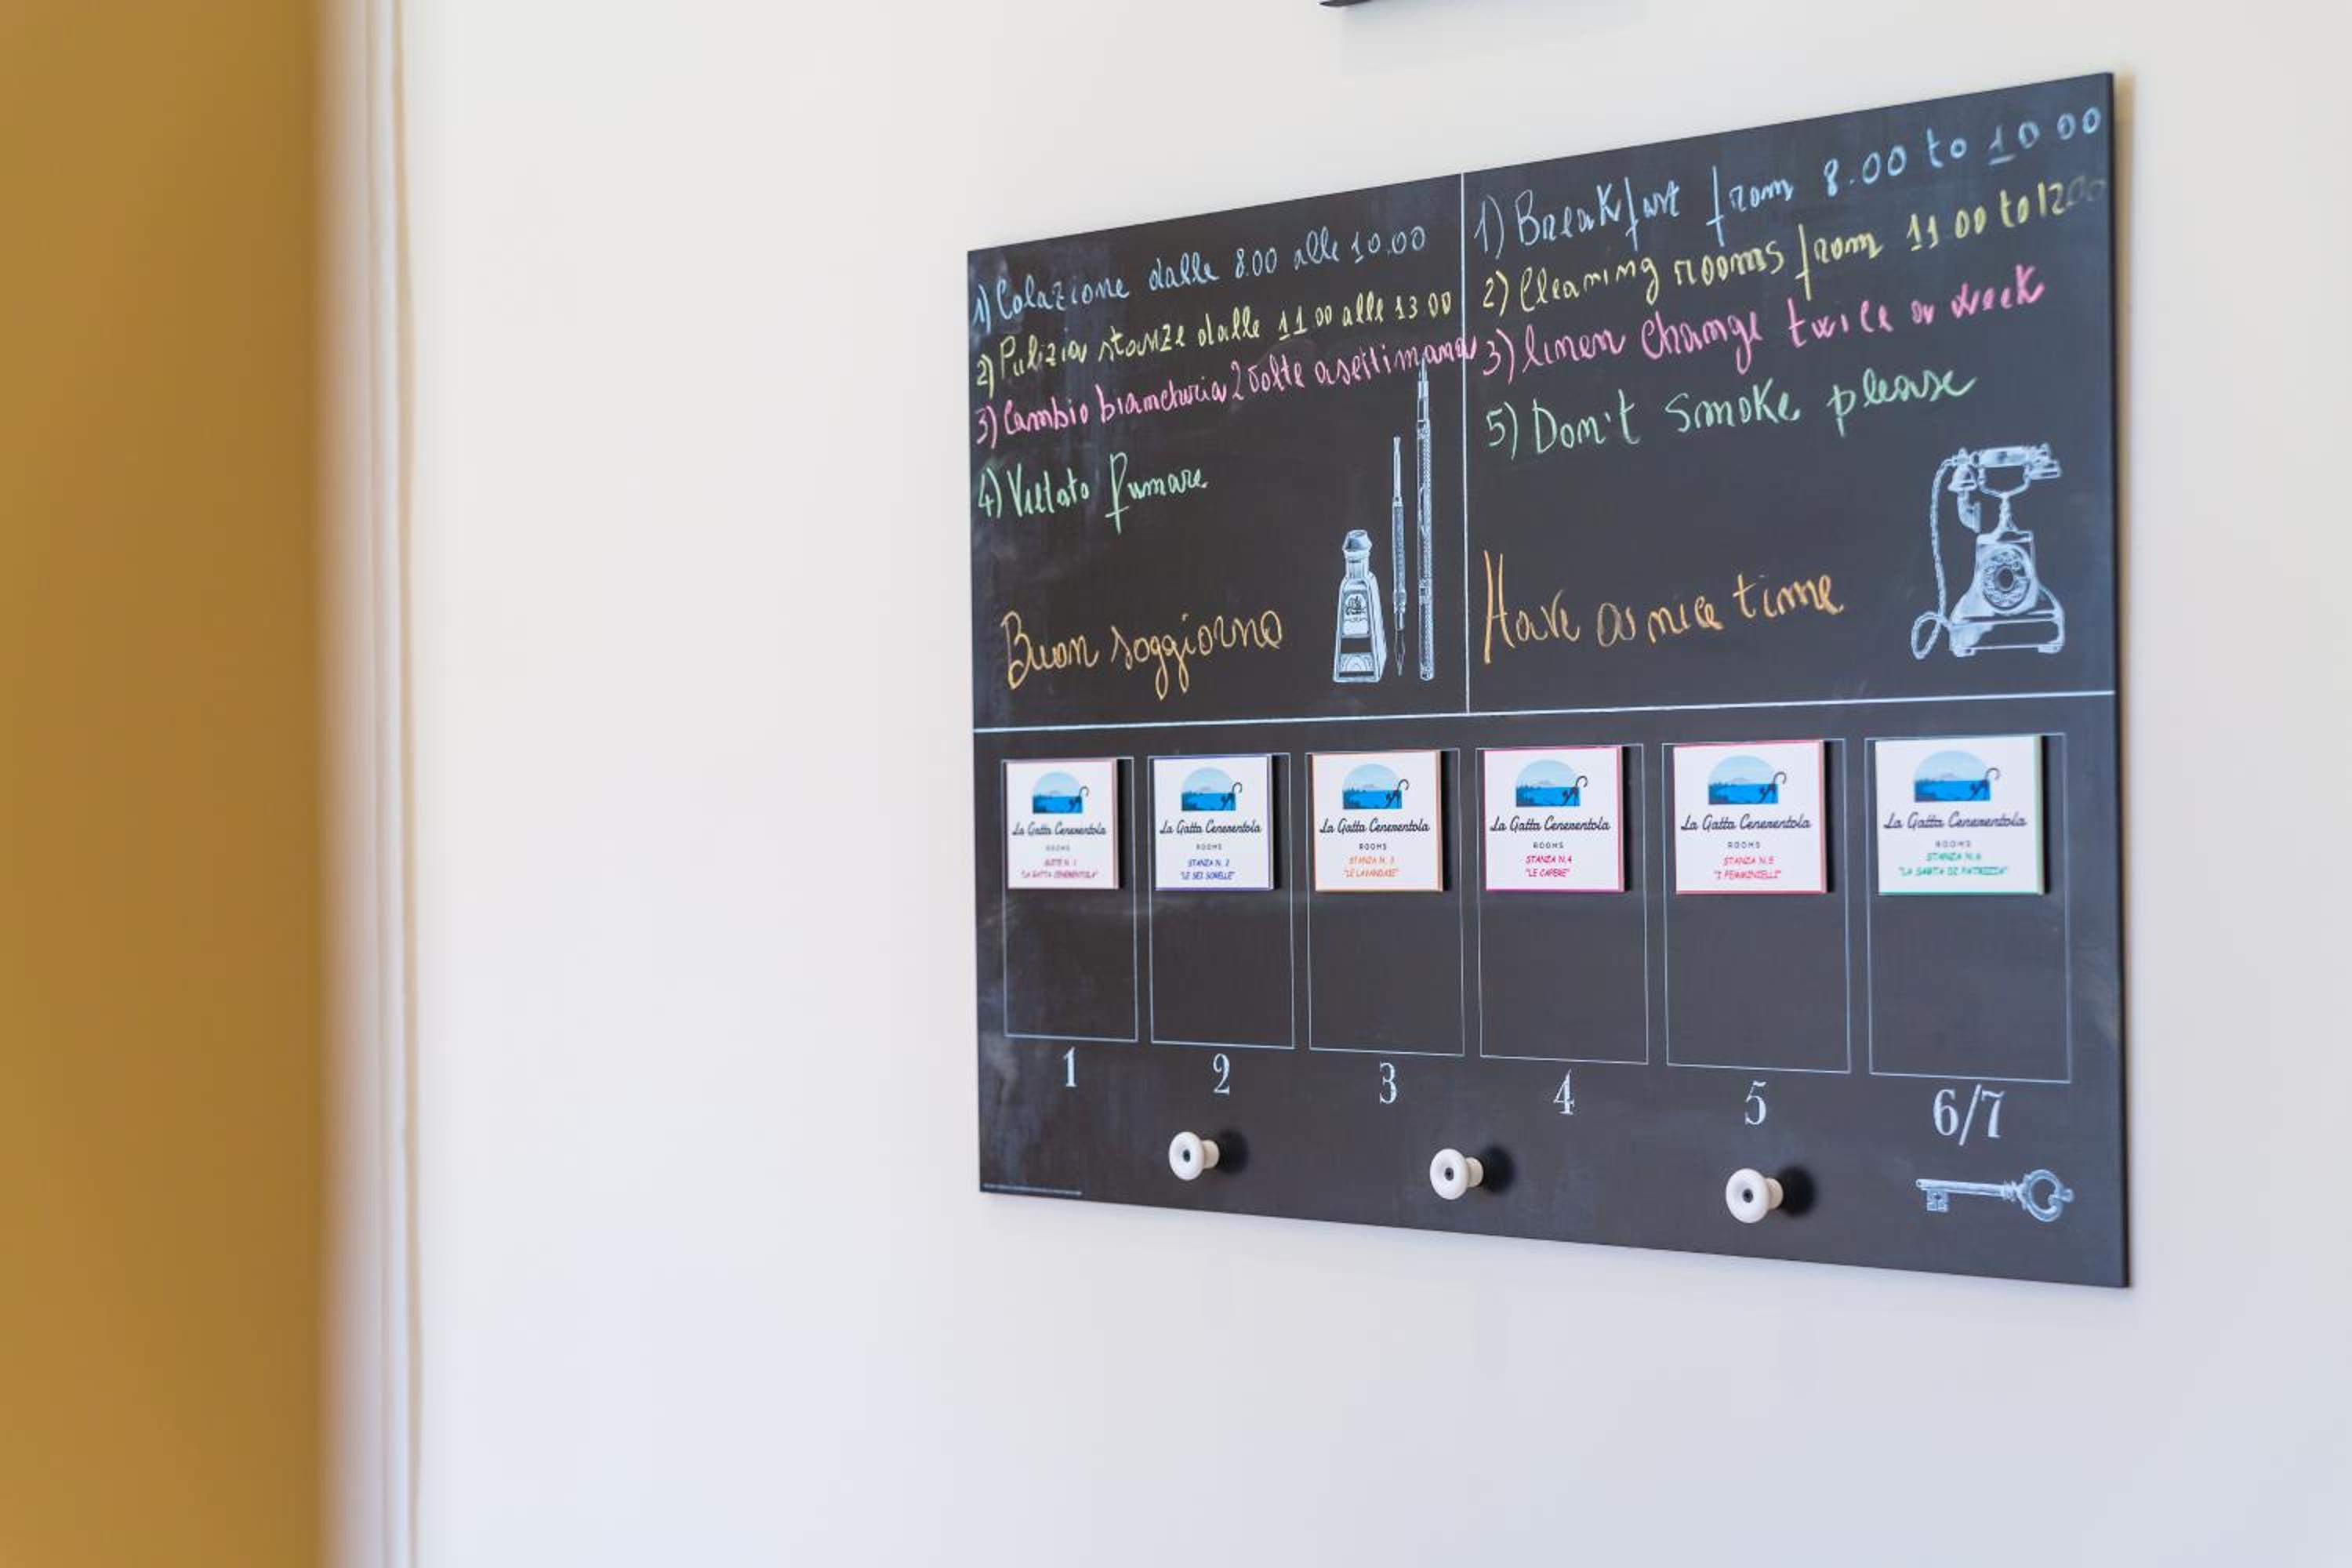 1) Colazione dalle 8.00 alle 10.00
2) Pulizia stanze dalle 11 00 alle 13 00
3) Cambio biancheria 2 volte a settimana
4) Vietato fumare
Buon soggiorno
1) Breakfast from 8.00 to 10 00
2) Cleaning rooms from 11 00 to 12 00
3) linen change twice a week
5) Don't smoke please
Have a nice time
La Gatta Cenerentola
ROOMS
SUITE N. 1
"LA GATTA CENERENTOLA"
La Gatta Cenerentola
ROOMS
STANZA N. 2
"LE SEI SORELLE"
La Gatta Cenerentola
ROOMS
STANZA N. 3
"LE LAVANDAIE"
La Gatta Cenerentola
ROOMS
STANZA N.4
"LE CAPERE"
La Gatta Cenerentola
ROOMS
STANZA N.5
"I FEMMINIELLI"
La Gatta Cenerentola
ROOMS
STANZA N.6
"LA SARTA DI PATRIZIA"
1
2
3
4
5
6/7